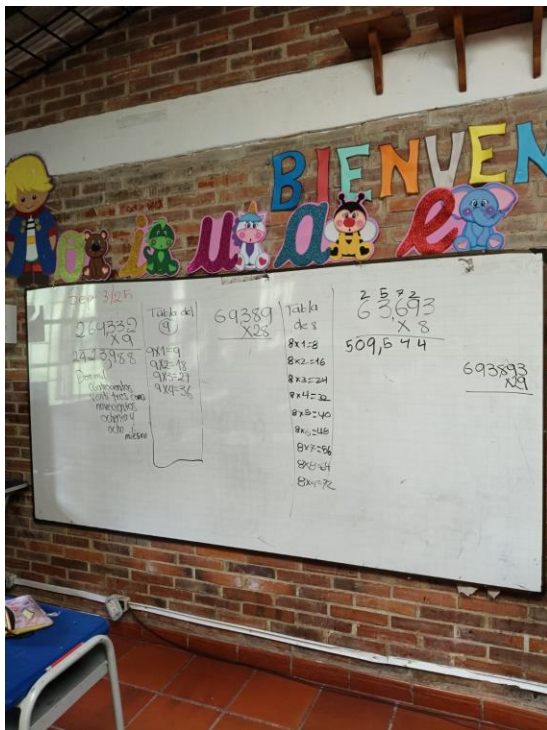 BIENVEN
o i u a e
Sep 3/25
269332
X9
2423988
Tabla del
9
9x1=9
9x2=18
9x3=27
9x4=36
69389
X28
Tabla
de 8
8x1=8
8x2=16
8x3=24
8x4=32
8x5=40
8x6=48
8x7=56
8x8=64
8x9=72
2 5 7 2
63,693
X 8
509,544
693,893
X9